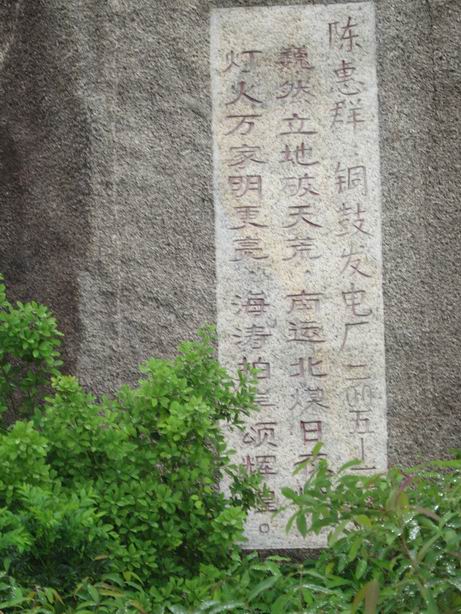 陈惠群·铜鼓发电厂 二00五十一
巍然立地破天荒·南运北煤日
灯火万家明更亮·海涛拍岸颂辉煌。